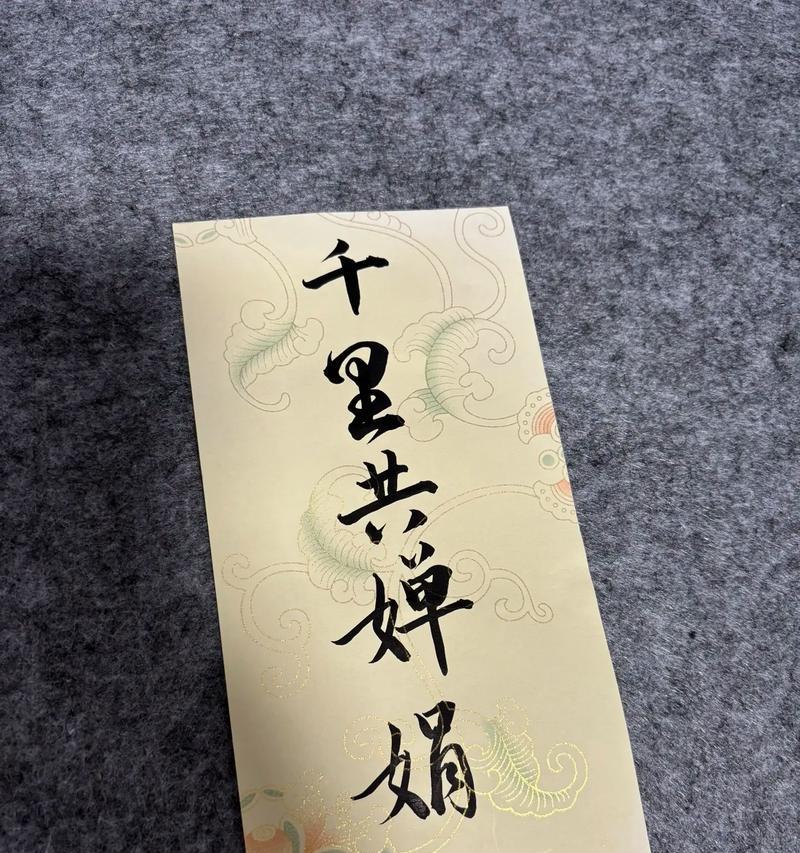 千里共婵娟